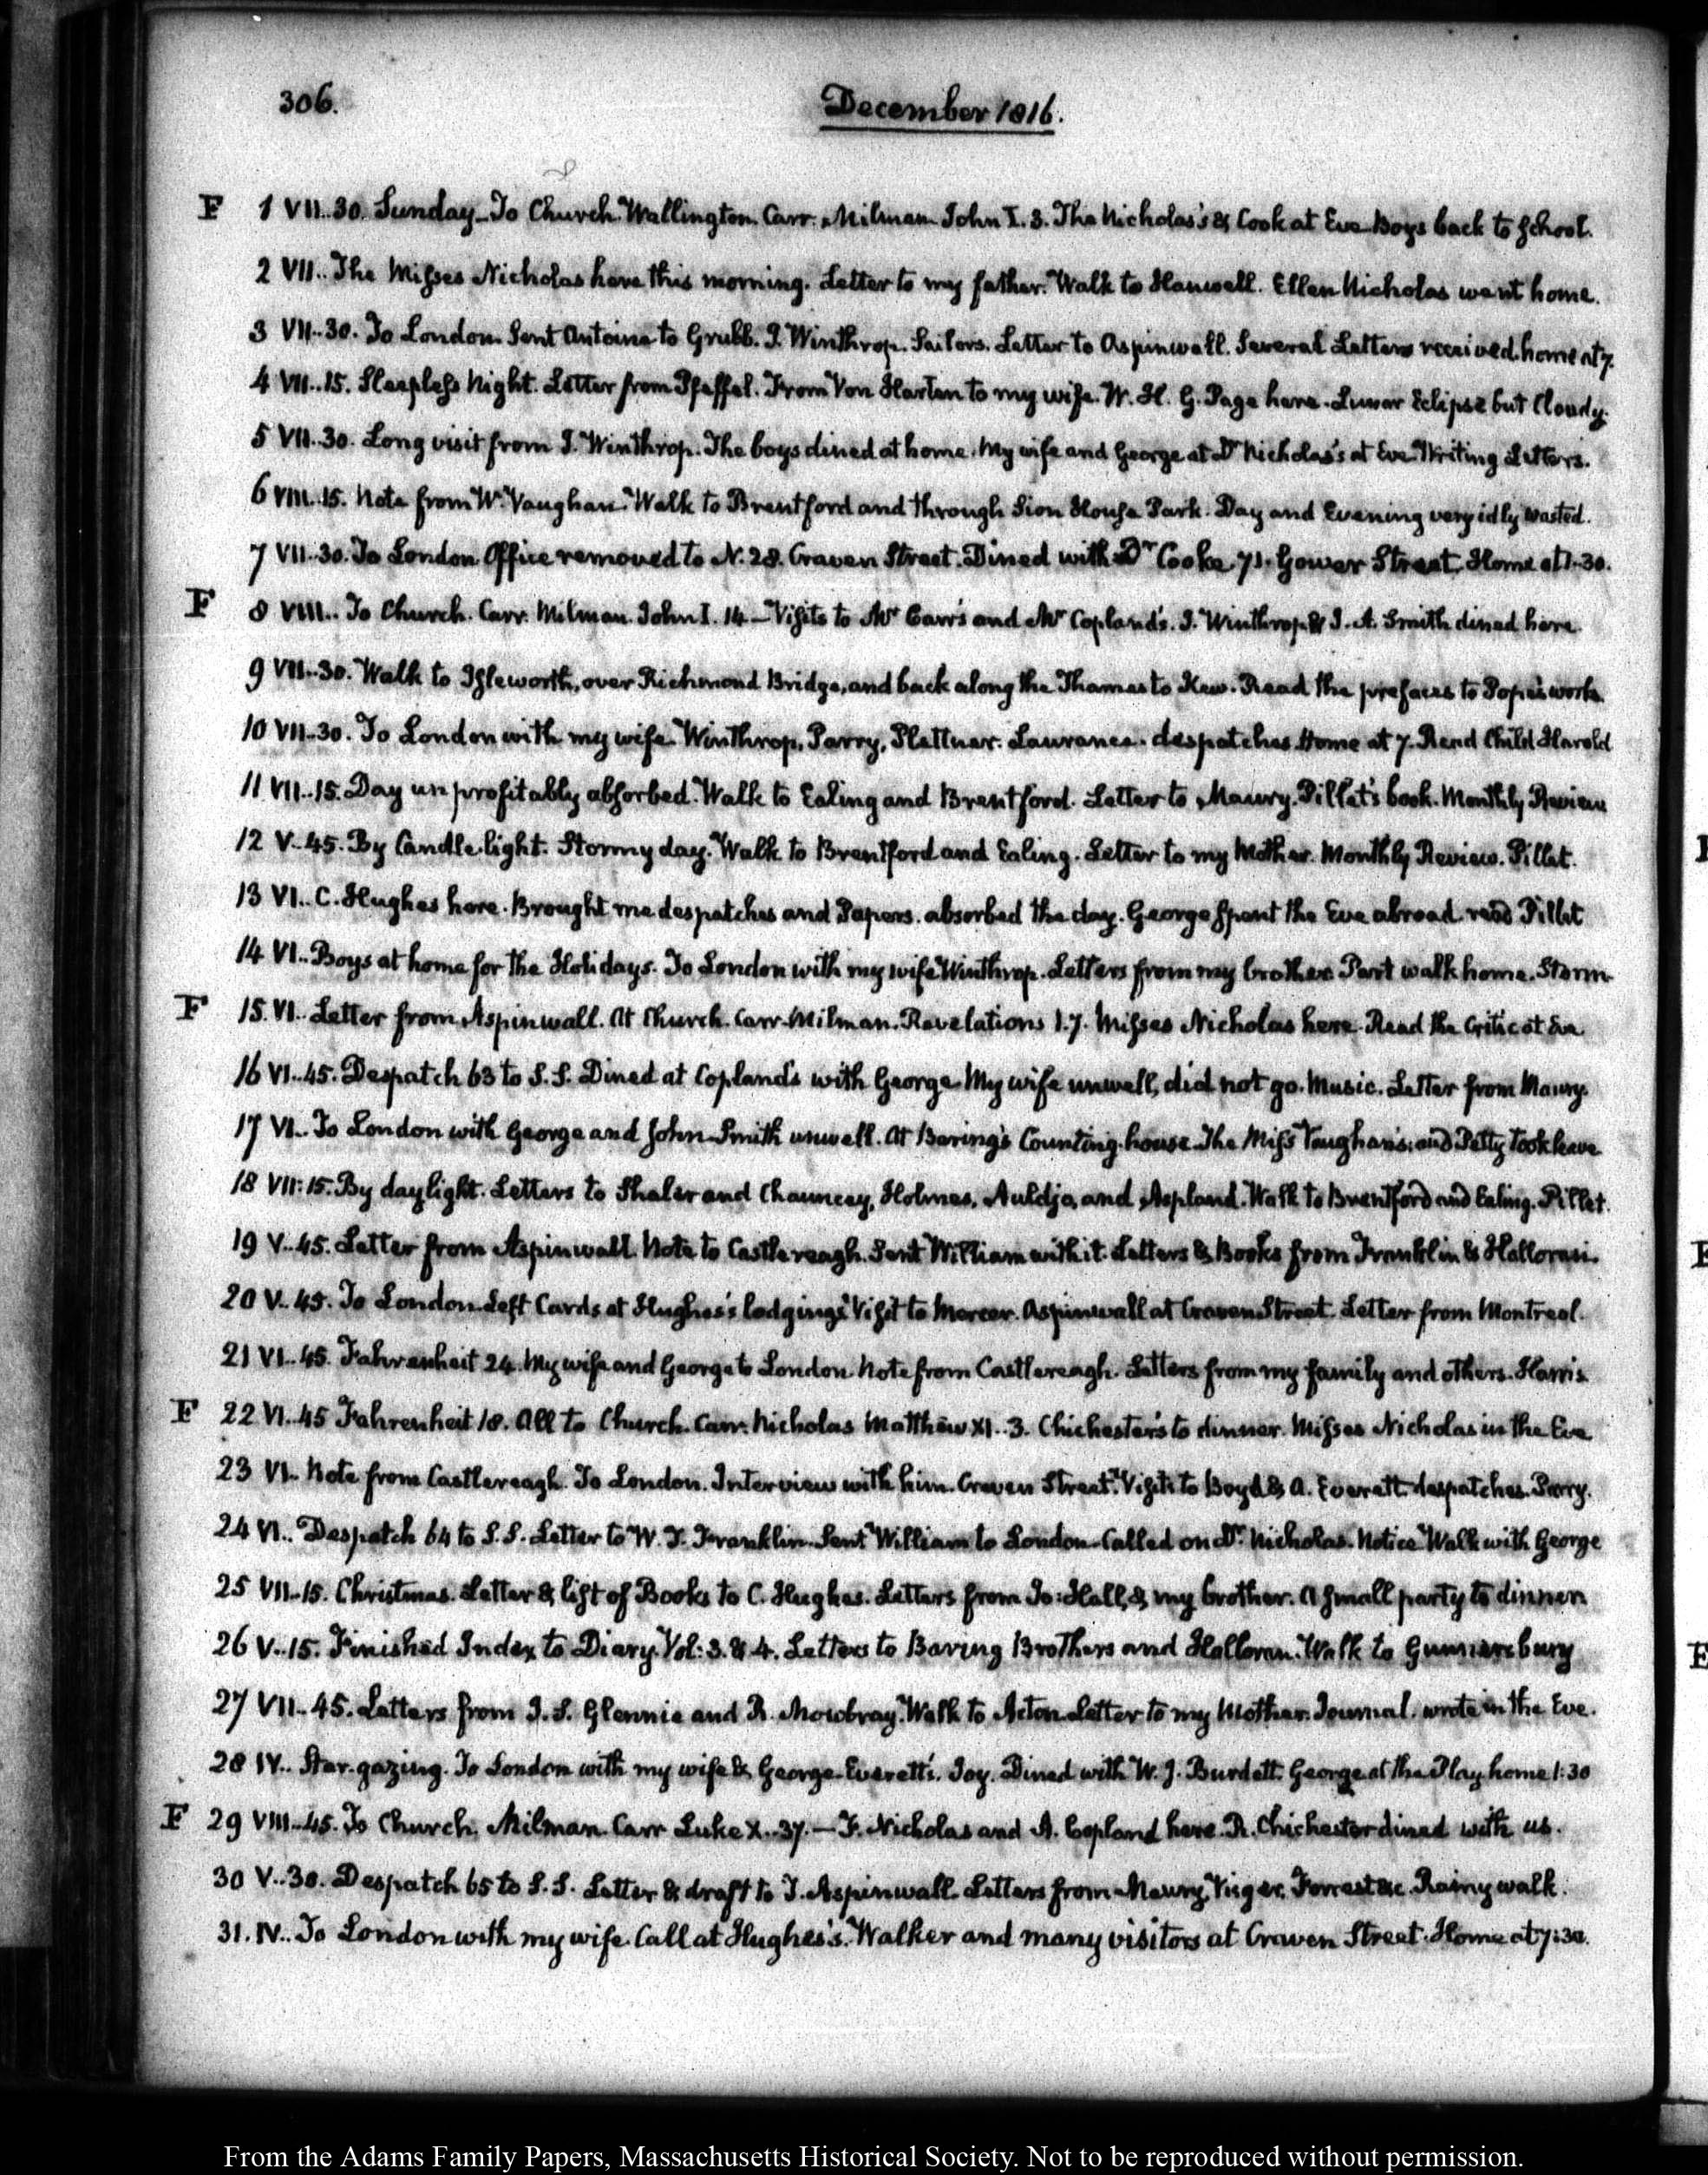 306.
December 1816.
F 1 VII..30. Sunday_To Church. Wallington. Carr. Milman John I. 3. The Nicholas's & Cook at Eve. Boys back to School.
2 VII.. The Misses Nicholas here this morning. Letter to my father. Walk to Hanwell. Ellen Nicholas went home.
3 VII..30. To London. Sent Antoine to Grubb. J. Winthrop. Sailors. Letter to Aspinwall. Several Letters received. home at 7.
4 VII..15. Sleepless Night. Letter from Pfeffel. From Von Harten to my wife. W. H. G. Page here. Lunar Eclipse but Cloudy.
5 VII..30. Long visit from J. Winthrop. The boys dined at home. My wife and George at Dr Nicholas's at Eve. Writing Letters.
6 VIII..15. Note from W. Vaughan. Walk to Brentford and through Sion House Park. Day and Evening very idly wasted.
7 VII..30. To London. Office removed to N. 28. Craven Street. Dined with Dr Cooke. 71. Gower Street. Home at 1..30.
F 8 VIII.. To Church. Carr. Milman. John I. 14—Visits to Mr Carr's and Mr Copland's. J. Winthrop & J. A. Smith dined here.
9 VII..30. Walk to Isleworth, over Richmond Bridge, and back along the Thames to Kew. Read the prefaces to Pope's works.
10 VII..30. To London with my wife. Winthrop, Parry, Plattner. Laurance. despatches. Home at 7. Read Child Harold
11 VII..15. Day unprofitably absorbed. Walk to Ealing and Brentford. Letter to Maury. Pillet's book. Monthly Review
12 V..45. By Candle light. Stormy day. Walk to Brentford and Ealing. Letter to my Mother. Monthly Review. Pillet.
13 VI.. C. Hughes here. Brought me despatches and Papers. absorbed the day. George spent the Eve abroad. read Pillet
14 VI.. Boys at home for the Holidays. To London with my wife. Winthrop. Letters from my brother. Part walk home. Storm
F 15. VI.. Letter from Aspinwall. At Church. Carr. Milman. Revelations 1.7. Misses Nicholas here. Read the Critic at Eve
16 VI..45. Despatch 63 to S.S. Dined at Copland's with George. My wife unwell, did not go. Music. Letter from Maury.
17 VI.. To London with George and John. Smith unwell. At Baring's Counting-house. The Miss Vaughan's. and Petty took leave
18 VII..15. By daylight. Letters to Shaler and Chauncey, Holmes, Auldjo, and Aspland. Walk to Brentford and Ealing. Pillet.
19 V..45. Letter from Aspinwall. Note to Castlereagh. Sent William with it. Letters & Books from Franklin & Halloran.
20 V..45. To London. Left Cards at Hughes's lodgings. Visit to Mercer. Aspinwall at Craven Street. Letter from Montreal.
21 VI..45. Fahrenheit 24. My wife and George to London. Note from Castlereagh. Letters from my family and others. Harris.
F 22 VI..45 Fahrenheit 18. All to Church. Carr. Nicholas Matthew XI..3. Chichester's to dinner. Misses Nicholas in the Eve
23 VI.. Note from Castlereagh. To London. Interview with him. Craven Street. Visits to Boyd & A. Everett. despatches. Parry.
24 VI.. Despatch 64 to S.S. Letter to W. T. Franklin. Sent William to London. Called on Dr. Nicholas. Notice. Walk with George
25 VII..15. Christmas. Letter & list of Books to C. Hughes. Letters from Jo: Hall, & my brother. A small party to dinner.
26 V..15. Finished Index to Diary. Vol: 3. & 4. Letters to Baring Brothers and Halloran. Walk to Gunnersbury
27 VII..45. Letters from J. S. Glennie and R. Mowbray. Walk to Acton. Letter to my Mother. Journal. wrote in the Eve.
28 IV.. Star-gazing. To London with my wife & George. Everett's. Joy. Dined with W. J. Burdett. George at the Play home 1:30
F 29 VIII..45. To Church. Milman. Carr Luke X..37.—F. Nicholas and A. Copland here. R. Chichester dined with us.
30 V..30. Despatch 65 to S.S. Letter & draft to T. Aspinwall. Letters from Maury, Viger, Forrest &c. Rainy walk.
31. IV.. To London with my wife. Call at Hughes's. Walker and many visitors at Craven Street. Home at 7:30.
From the Adams Family Papers, Massachusetts Historical Society. Not to be reproduced without permission.